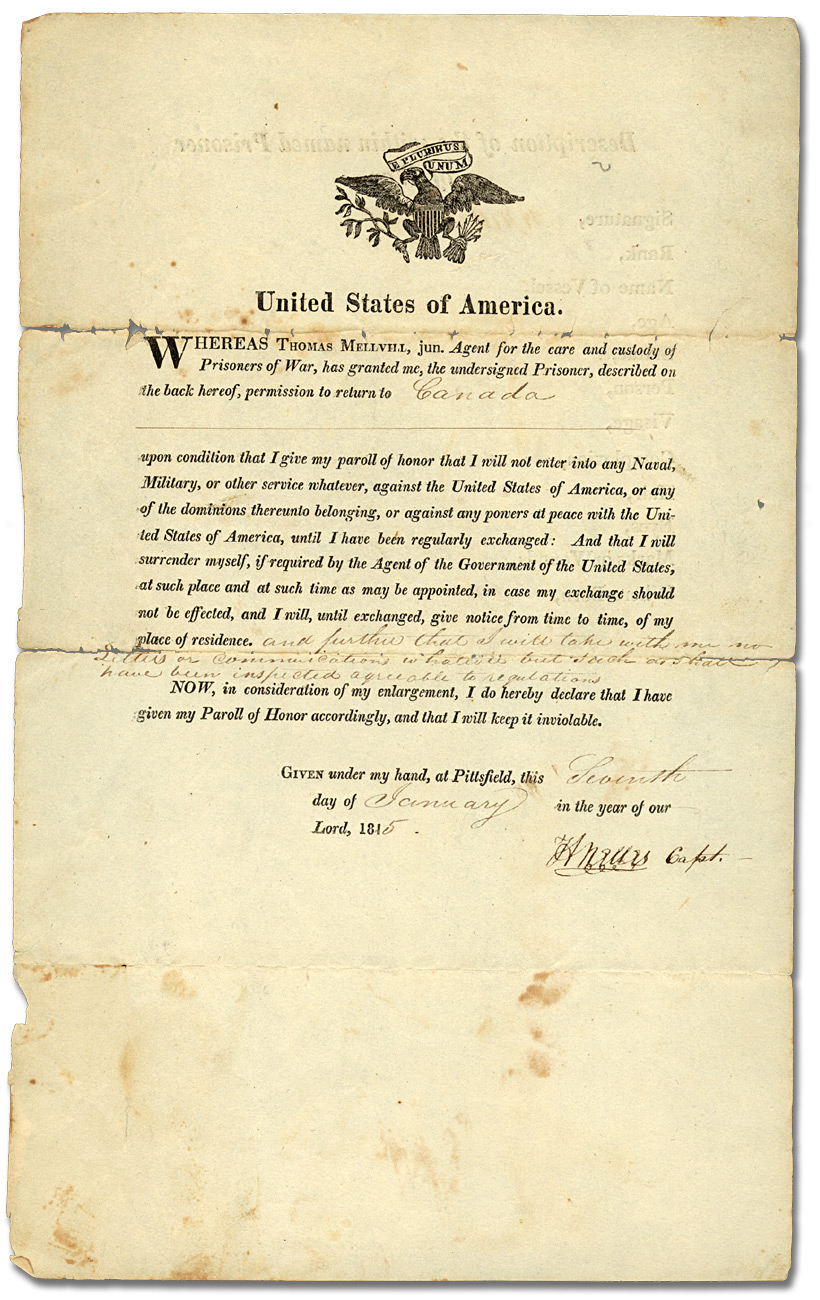 E PLURIBUS
UNUM
United States of America.
WHEREAS THOMAS MELLVILL, jun. Agent for the care and custody of
Prisoners of War, has granted me, the undersigned Prisoner, described on
the back hereof, permission to return to Canada
upon condition that I give my paroll of honor that I will not enter into any Naval,
Military, or other service whatever, against the United States of America, or any
of the dominions thereunto belonging, or against any powers at peace with the Uni-
ted States of America, until I have been regularly exchanged: And that I will
surrender myself, if required by the Agent of the Government of the United States,
at such place and at such time as may be appointed, in case my exchange should
not be effected, and I will, until exchanged, give notice from time to time, of my
place of residence. and further that I will take with me no
letters or communications whatever but such as shall
have been inspected agreable to regulations
NOW, in consideration of my enlargement, I do hereby declare that I have
given my Paroll of Honor accordingly, and that I will keep it inviolable.
GIVEN under my hand, at Pittsfield, this Seventh
day of January in the year of our
Lord, 1815.
H Nelles Capt.
Description of the within named Prisoner
Signature,
Rank,
Name of Vessel
Age,
Person,
Visage,